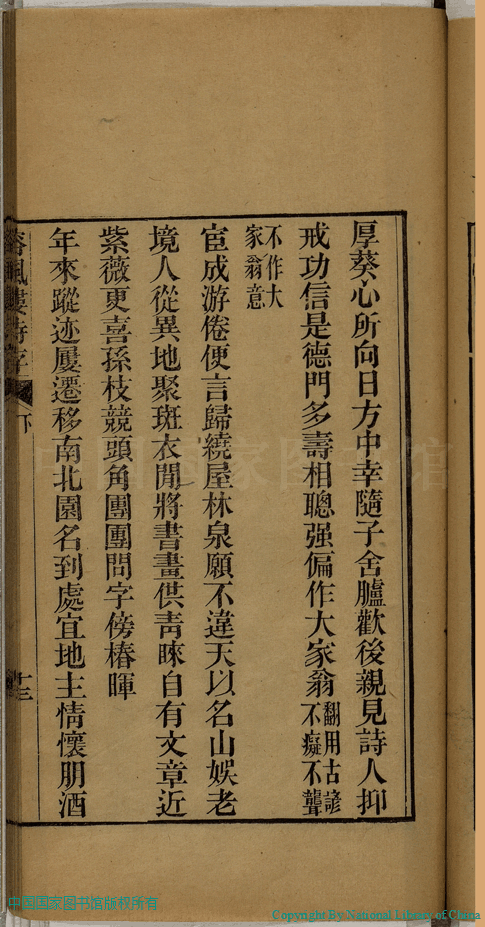 厚葵心所向日方中幸隨子舍臚歡後親見詩人抑
戒功信是德門多壽相聰强偏作大家翁翻用古諺不癡不聾
不作大家翁意
宦成游倦便言歸繞屋林泉願不違天以名山娛老
境人從異地聚斑衣閒將書畫供靑睞自有文章近
紫薇更喜孫枝競頭角團團問字傍椿暉
年來蹤迹屢遷移南北園名到處宜地主情懷朋酒
下
十三
中国国家图书馆
中国国家图书馆版权所有
Copyright By National Library of China